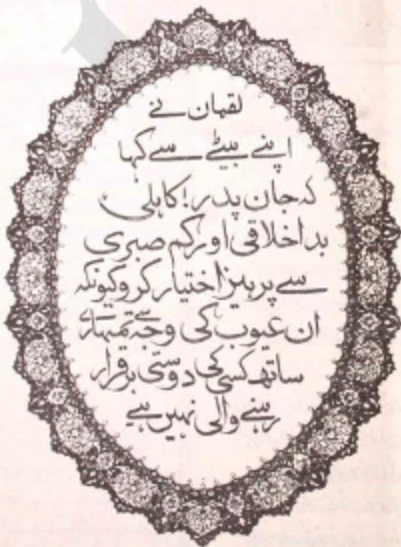 لقمان نے
اپنے بیٹے سے کہا
کہ جان پدر! کاہلی
بداخلاقی اور کم صبری
سے پرہیز اختیار کرو کیونکہ
ان عیوب کی وجہ سے تمہارے
ساتھ کسی کی دوستی برقرار
رہنے والی نہیں ہے